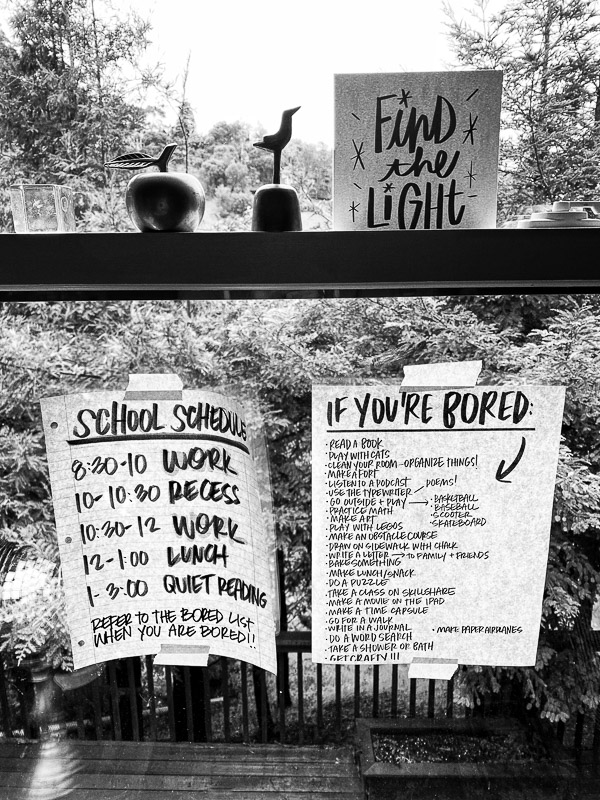 FinD
the
LiGHT
SCHOOL SCHEDULE
8:30-10 WORK
10-10:30 RECESS
10:30-12 WORK
12-1:00 LUNCH
1-3:00 QUIET READING
REFER TO THE BORED LIST
WHEN YOU ARE BORED!!
IF YOU'RE BORED:
· READ A BOOK
· PLAY WITH CATS
· CLEAN YOUR ROOM - ORGANIZE THINGS!
· MAKE A FORT
· LISTEN TO A PODCAST
· USE THE TYPEWRITER - POEMS!
· GO OUTSIDE + PLAY → · BASKETBALL
· BASEBALL
· SCOOTER
· SKATEBOARD
· PRACTICE MATH
· MAKE ART
· PLAY WITH LEGOS
· MAKE AN OBSTACLE COURSE
· DRAW ON SIDEWALK WITH CHALK
· WRITE A LETTER → TO FAMILY + FRIENDS
· BAKE SOMETHING
· MAKE LUNCH/SNACK
· DO A PUZZLE
· TAKE A CLASS ON SKILLSHARE
· MAKE A MOVIE ON THE IPAD
· MAKE A TIME CAPSULE
· GO FOR A WALK
· WRITE IN A JOURNAL
· MAKE PAPER AIRPLANES
· DO A WORD SEARCH
· TAKE A SHOWER OR BATH
· GET CRAFTY !!!